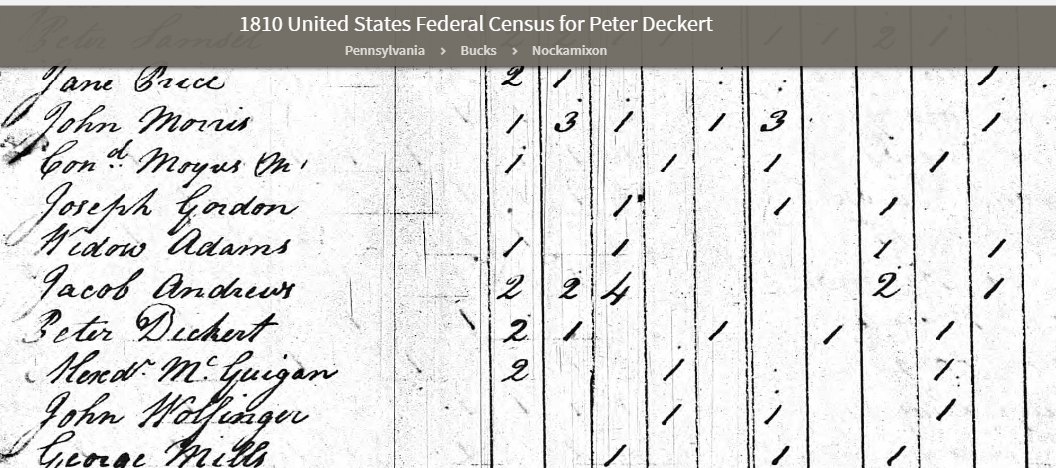 1810 United States Federal Census for Peter Deckert
Pennsylvania > Bucks > Nockamixon
Jane Price 2 1 1
John Morris 1 3 1 1 3 1
Con.d Moyus 1 1 1 1
Joseph Gordon 1 1 1
Widow Adams 1 1 1 1
Jacob Andrews 2 2 4 2 1
Peter Dickert 2 1 1 1 1
McGuigan 2 1 1
John Wolfinger 1 1 1
George Mills 1 1 1